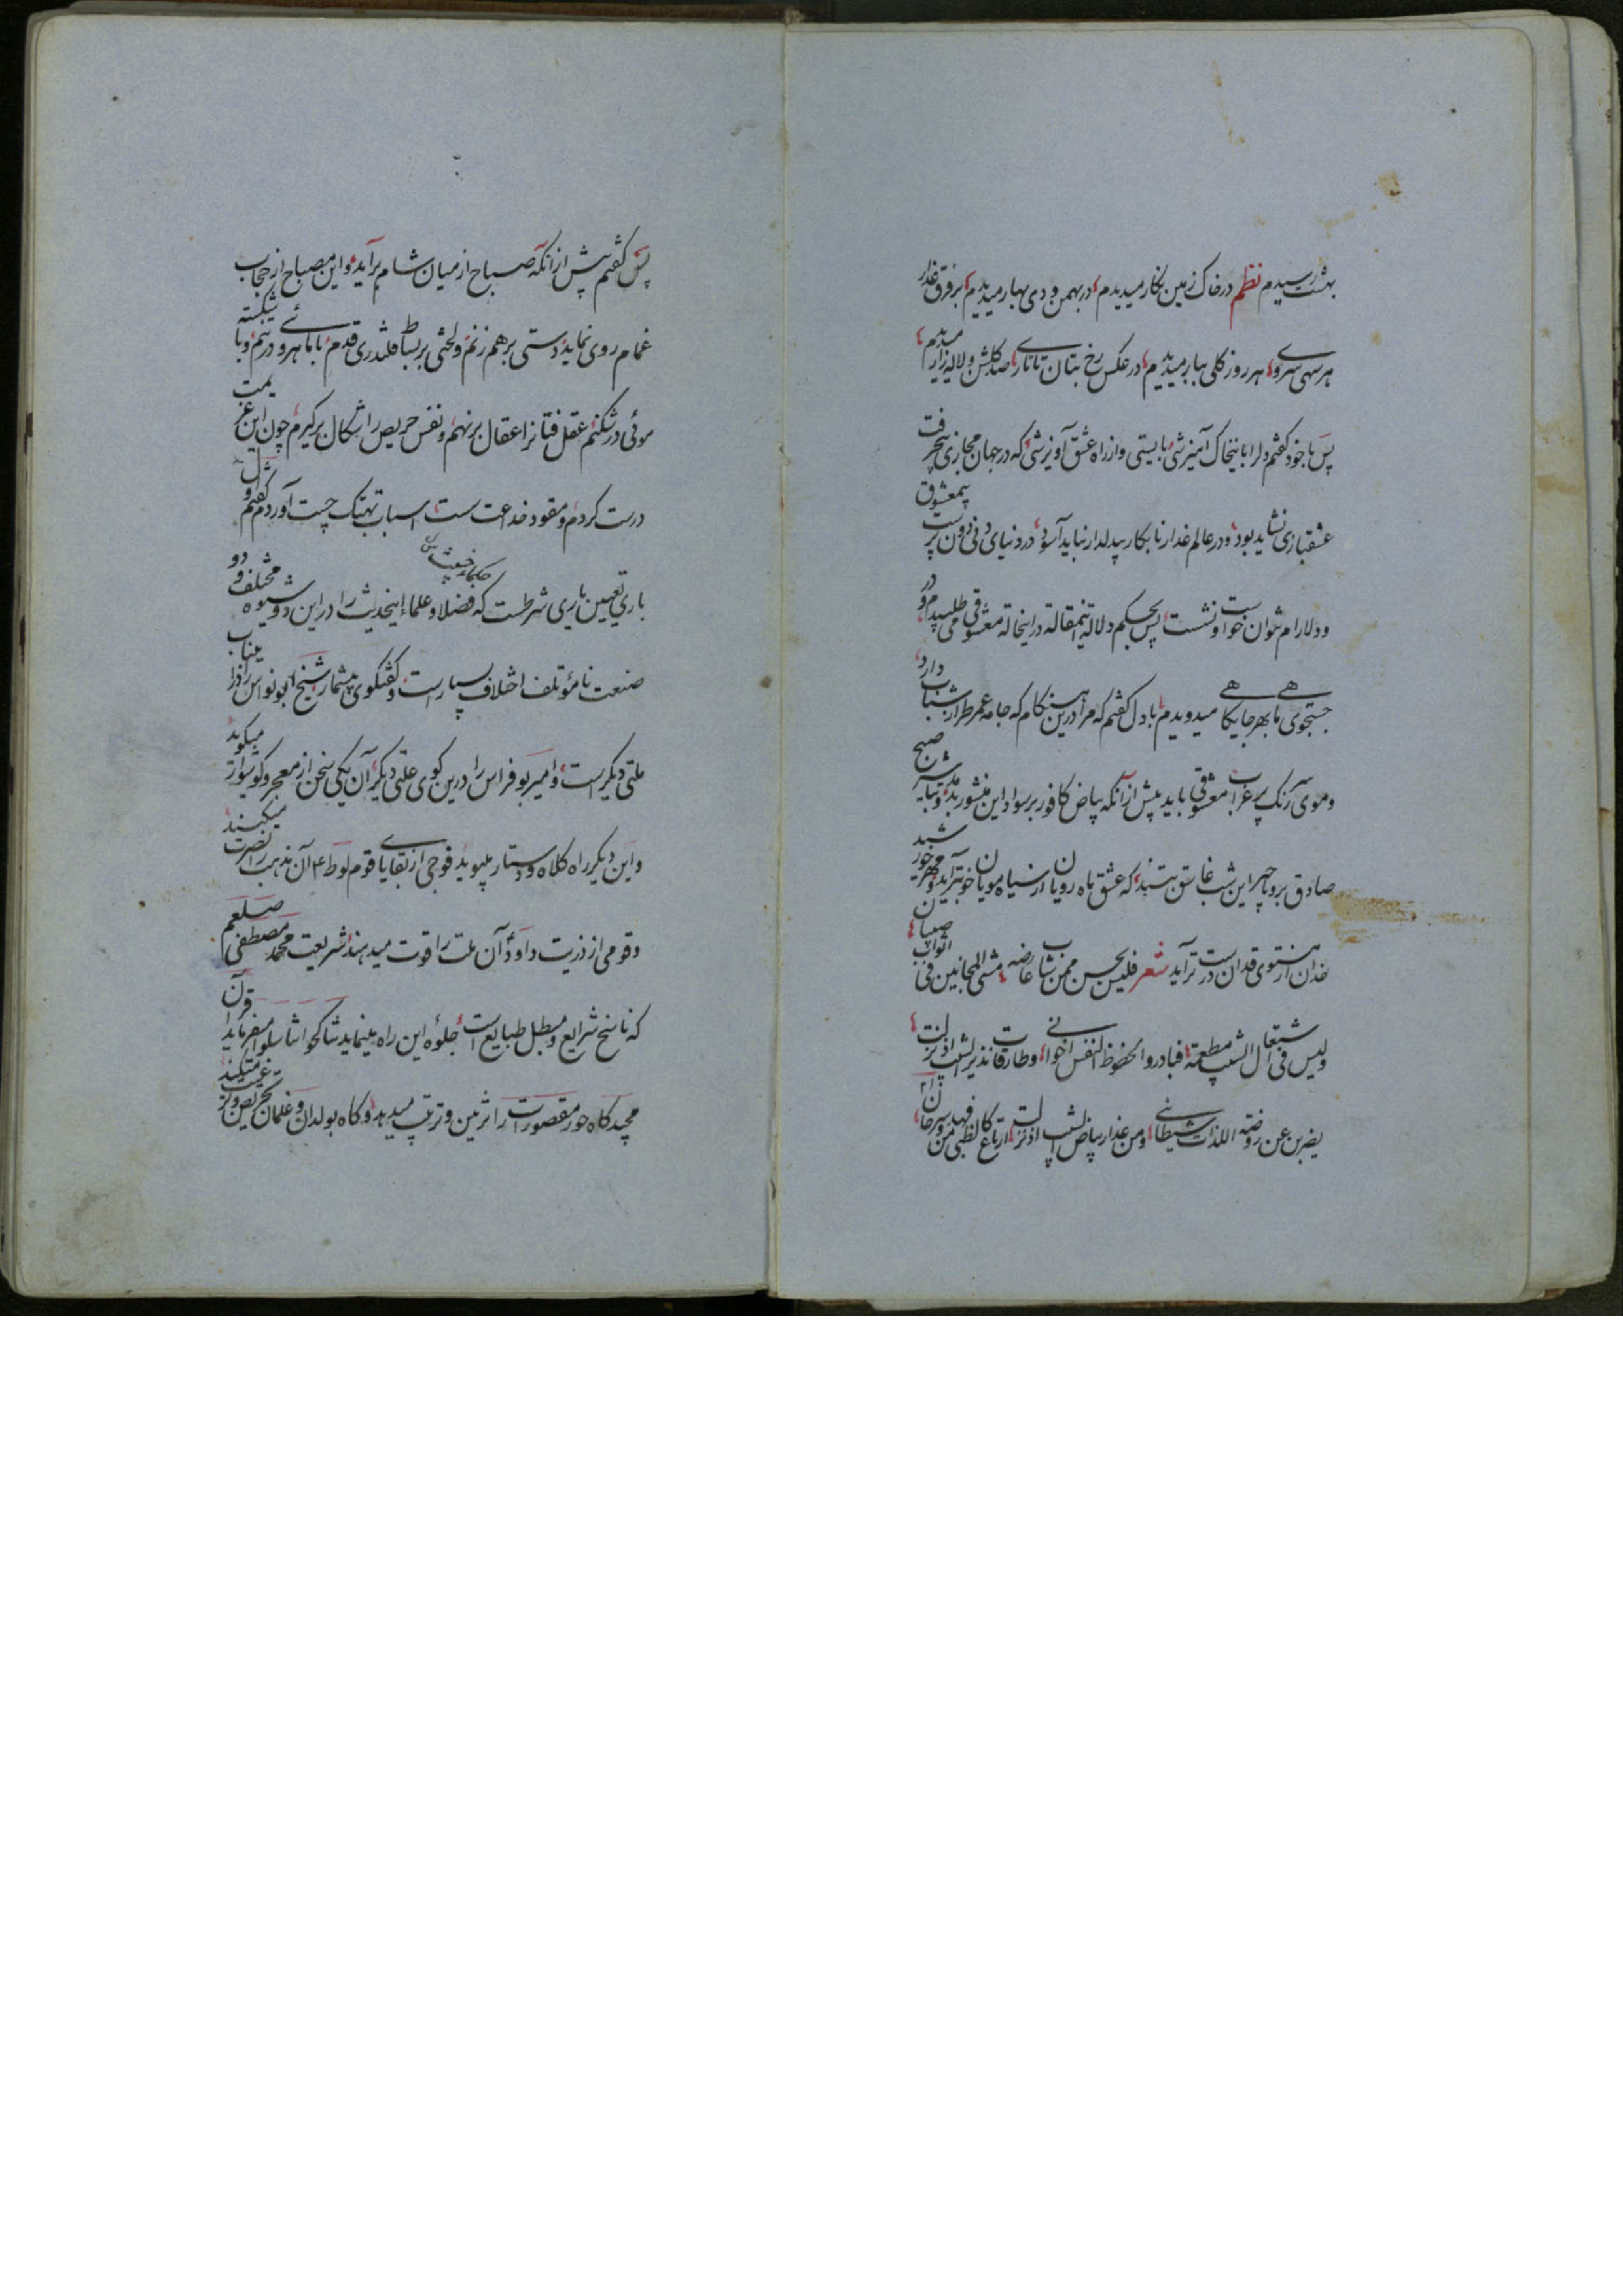 بهشت رسیدم نظم در خاک زمین نگار میدیدم در بهمن و دی بهار میدیدم بر فرق غدار
هر سهی سروی هر روز گلی ببار میدیدم در عکس رخ بتان تاتاری صد گلشن و لاله زار میدیدم
پس با خود گفتم دلرا با نیخاک آمیزشی بایستی و از راه عشق آویزشی که در جهان مجازی بیحریف
عشقبازی نشاید بود و در عالم غدار نابکار بیدلدار نباید آسود در دنیای دنی دون پرست بیمعشوق
و دلارام نتوان خواست و نشست پس بحکم دلاله اینمقالة در اینحالة معشوقی می طلبیدم و در
جستجوی ما بهر جایگاهی میدویدم با دل گفتم که مرا درین هنگام که جامه عمر طراز شباب دارد
و موی سر رنگ پر غراب معشوقی باید پیش از آنکه بیاض کافور بر سواد این منشور بدمد و تباشیر صبح
صادق بر دیاچهر این شب غاسق بتند که عشق ماه رویان از سیاه مویان خوبتر آید و مهر خورشید
خدان از مستوی قدان درست تر آید شعر فلیس یحسن ممن شاب عارضه مشی المجانین فی اثواب صبیان
ولیس فی اشتعال الشیب مطعمة فبادروا لحظوظ النفس اخوانی وطارقات نذیر الشیب اذ نزلت
یضربن عن روضة اللذات شیطانی ومن غدار بیاض الشیب اذ نزلت ارتاع کالظبی من فهد و سرحان
پس گفتم پیش از آنکه صباح از میان شام برآید و این مصباح از حجاب
غمام روی نماید دستی بر هم زنم و لختی بر بساط قلندری قدم با ماهروئی در بنم و با شکسته
موئی در شکنم عقل فتانرا عقال برنهم و نفس حریص را شکال برگیرم چون این عزیمت
درست کردم و مقود خداعت سست اسباب تهتک چست آوردم گفتم اول
باری تعیین یاری شرطست که فضلا و علما اینحدیث را در این دو شیوه مختلف و دو
صنعت نامؤتلف اختلاف بسیارست و گفتگوی بیشمار شیخ ابو نواس را درین باب
ملتی دیگرست و امیر بو فراس را درین کوی علتی دیگر آن یکی سخن از معجر و گوشوار میگوید
و این دیگر راه کلاه و دستار میپوید فوجی از بقایای قوم لوط ع آن مذهب را نصرت میکنند
و قومی از ذریت داود آن ملت را قوت میدهند شریعت محمد مصطفی صلعم
که ناسخ شرایع و مبطل طبایع است جلوه این راه مینماید تناکحوا تناسلوا میفرماید قرآن
مجید گاه حور مقصورات را تزیین و ترتیب میدهد و گاه بولدان و غلمان تحریص و ترغیب میکند